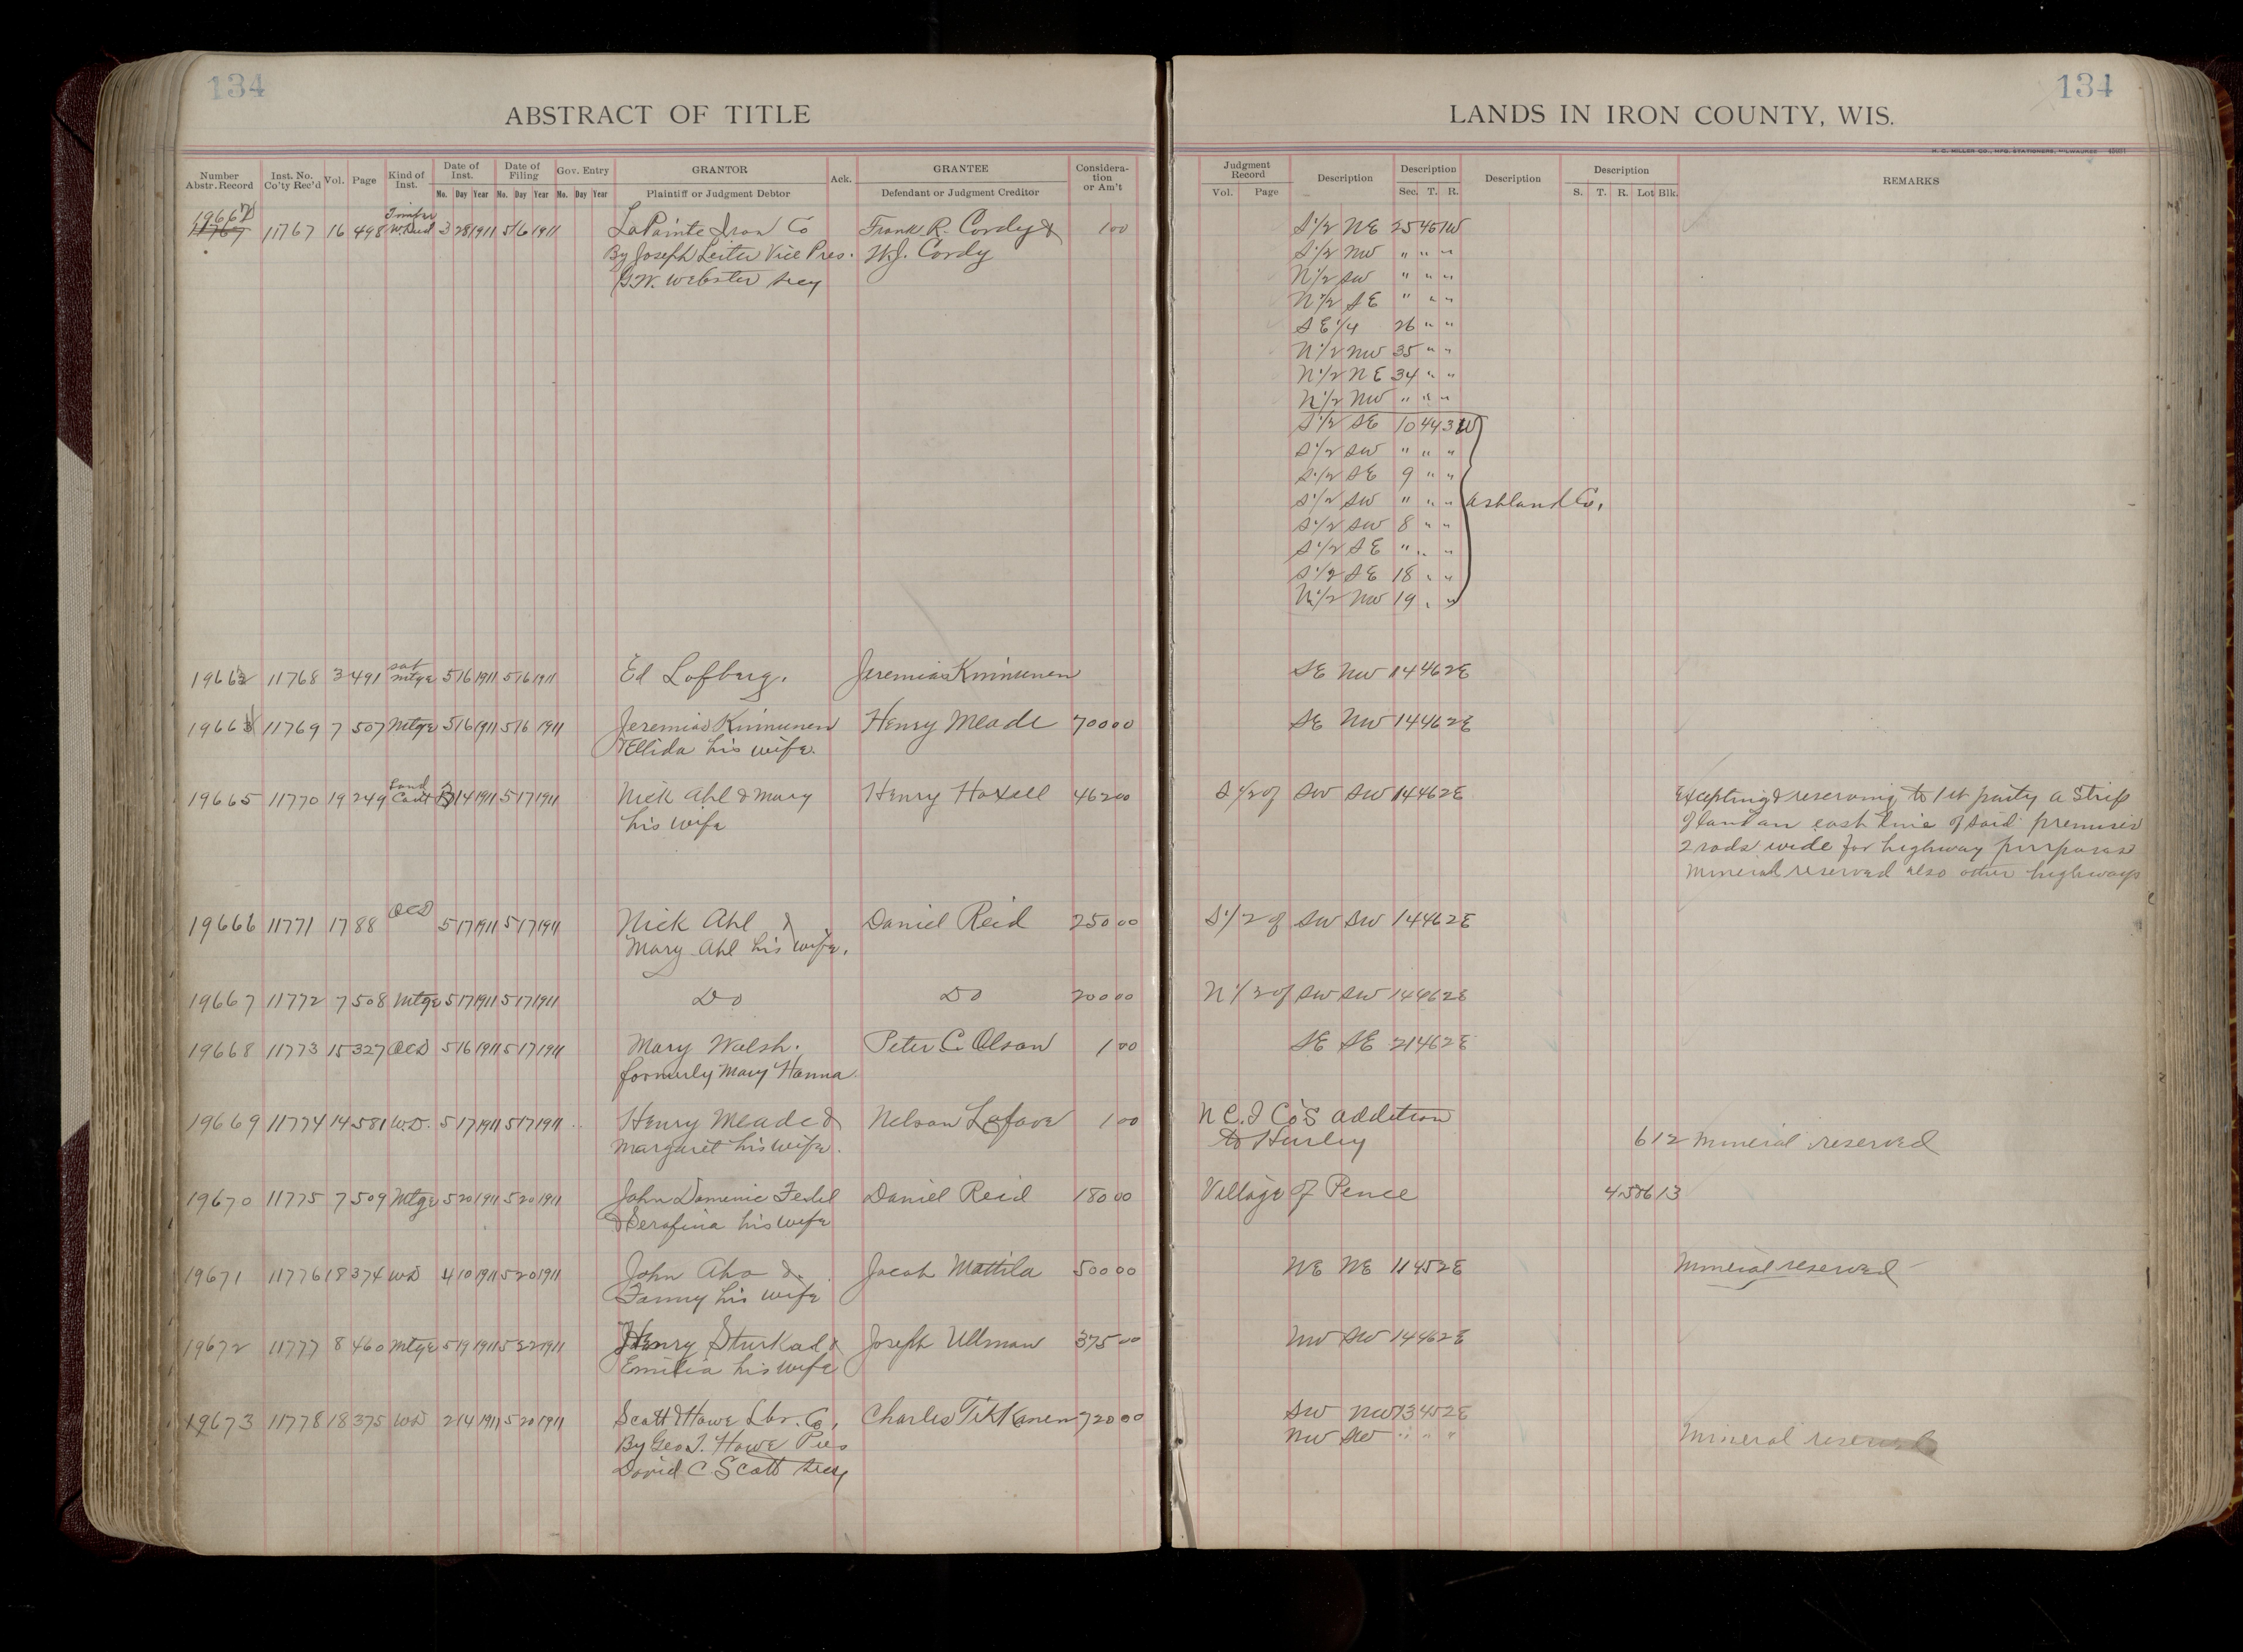 134
ABSTRACT OF TITLE
Number Abstr. Record Inst. No. Co'ty Rec'd Vol. Page Kind of Inst. Date of Inst. Mo. Day Year Date of Filing Mo. Day Year Gov. Entry Mo. Day Year GRANTOR Plaintiff or Judgment Debtor Ack. GRANTEE Defendant or Judgment Creditor Considera-tion or Am't
11767 16 498 Timber W. Deed 3 28 1911 5 16 1911 LaPointe Iron Co Frank R. Cordy & 1 00
By Joseph Leiter Vice Pres. W.J. Cordy
G.W. Webster Secy
11768 3 491 sat mtge 5 16 1911 5 16 1911 Ed Lofberg. Jeremias Kinnunen
11769 7 507 Mtge 5 16 1911 5 16 1911 Jeremias Kinnunen Henry Meade 700 00
& Ellida his wife.
19665 11770 19 249 Land Cont 14 1911 5 17 1911 Nick Ahl & Mary Henry Hoxell 462 00
his wife
19666 11771 17 88 QCD 5 17 1911 5 17 1911 Nick Ahl & Daniel Reid 250 00
Mary Ahl his wife.
19667 11772 7 508 Mtge 5 17 1911 5 17 1911 Do Do 200 00
19668 11773 15 327 QCD 5 16 1911 5 17 1911 Mary Walsh. Peter C. Olson 1 00
formerly Mary Hanna
19669 11774 14 581 W.D. 5 17 1911 5 17 1911 Henry Meade & Nelson Lafave 1 00
Margaret his wife.
19670 11775 7 509 Mtge 5 20 1911 5 20 1911 John Domenic Fedel Daniel Reid 180 00
& Serafina his wife
19671 11776 18 374 WD 4 10 1911 5 20 1911 John Aho & Jacob Mattila 500 00
Fanny his wife
19672 11777 8 460 Mtge 5 19 1911 5 22 1911 Henry Sturkad & Joseph Ullman 375 00
Emilia his wife
19673 11778 18 375 WD 2 14 1911 5 20 1911 Scott & Howe Lbr. Co. Charles Tikkanen 720 00
By Geo. T. Howe Pres
David C. Scott Secy
134
LANDS IN IRON COUNTY, WIS.
H. C. MILLER CO., MFG. STATIONERS, MILWAUKEE
Judgment Record Vol. Page Description Description Sec. T. R. Description Description S. T. R. Lot Blk. REMARKS
S 1/2 NE 25 45 1W
S 1/2 NW " " "
N 1/2 SW " " "
N 1/2 SE " " "
SE 1/4 26 " "
N 1/2 NW 35 " "
N 1/2 NE 34 " "
N 1/2 NW " " "
S 1/2 SE 10 44 3W
S 1/2 SW " " "
S 1/2 SE 9 " "
S 1/2 SW " " " Ashland Co.
S 1/2 SW 8 " "
S 1/2 SE " " "
S 1/2 SE 18 " "
N 1/2 NW 19 " "
SE NW 14 46 2E
SE NW 14 46 2E
S 1/2 of SW SW 14 46 2E Excepting & reserving to 1st party a strip
of land on east line of said premises
2 rods wide for highway purposes
Mineral reserved also other highways
S 1/2 of SW SW 14 46 2E
N 1/2 of SW SW 14 46 2E
SE SE 21 46 2E
N C. I Co's addition
to Hurley 6 12 Mineral reserved
Village of Pence 4 5 8 6 13
NE NE 11 45 2E Mineral reserved
NW SW 14 46 2E
SW NW 13 45 2E
NW SW " " " Mineral reserved